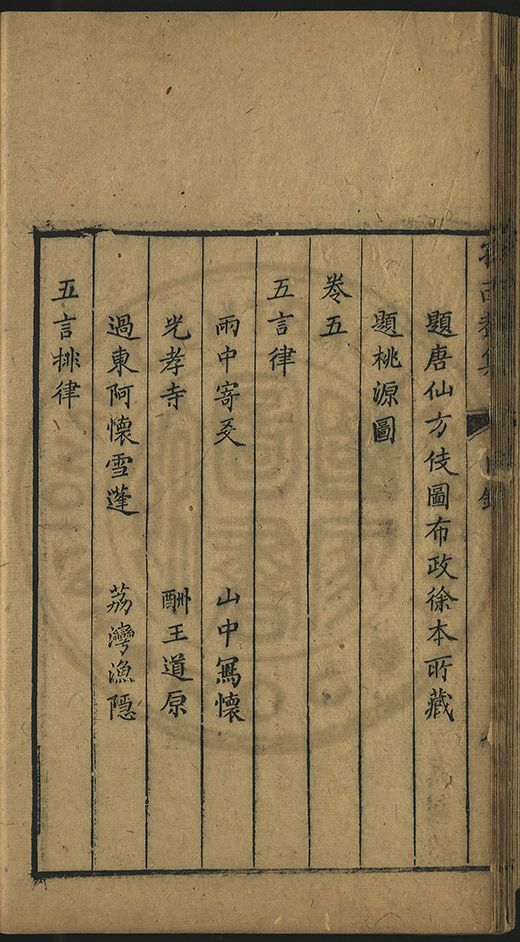 題唐仙方伎圖布政徐本所藏
題桃源圖
卷五
五言律
雨中寄友　山中冩懷
光孝寺　酬王道原
過東阿懷雪蓬　荔灣漁隱
五言排律